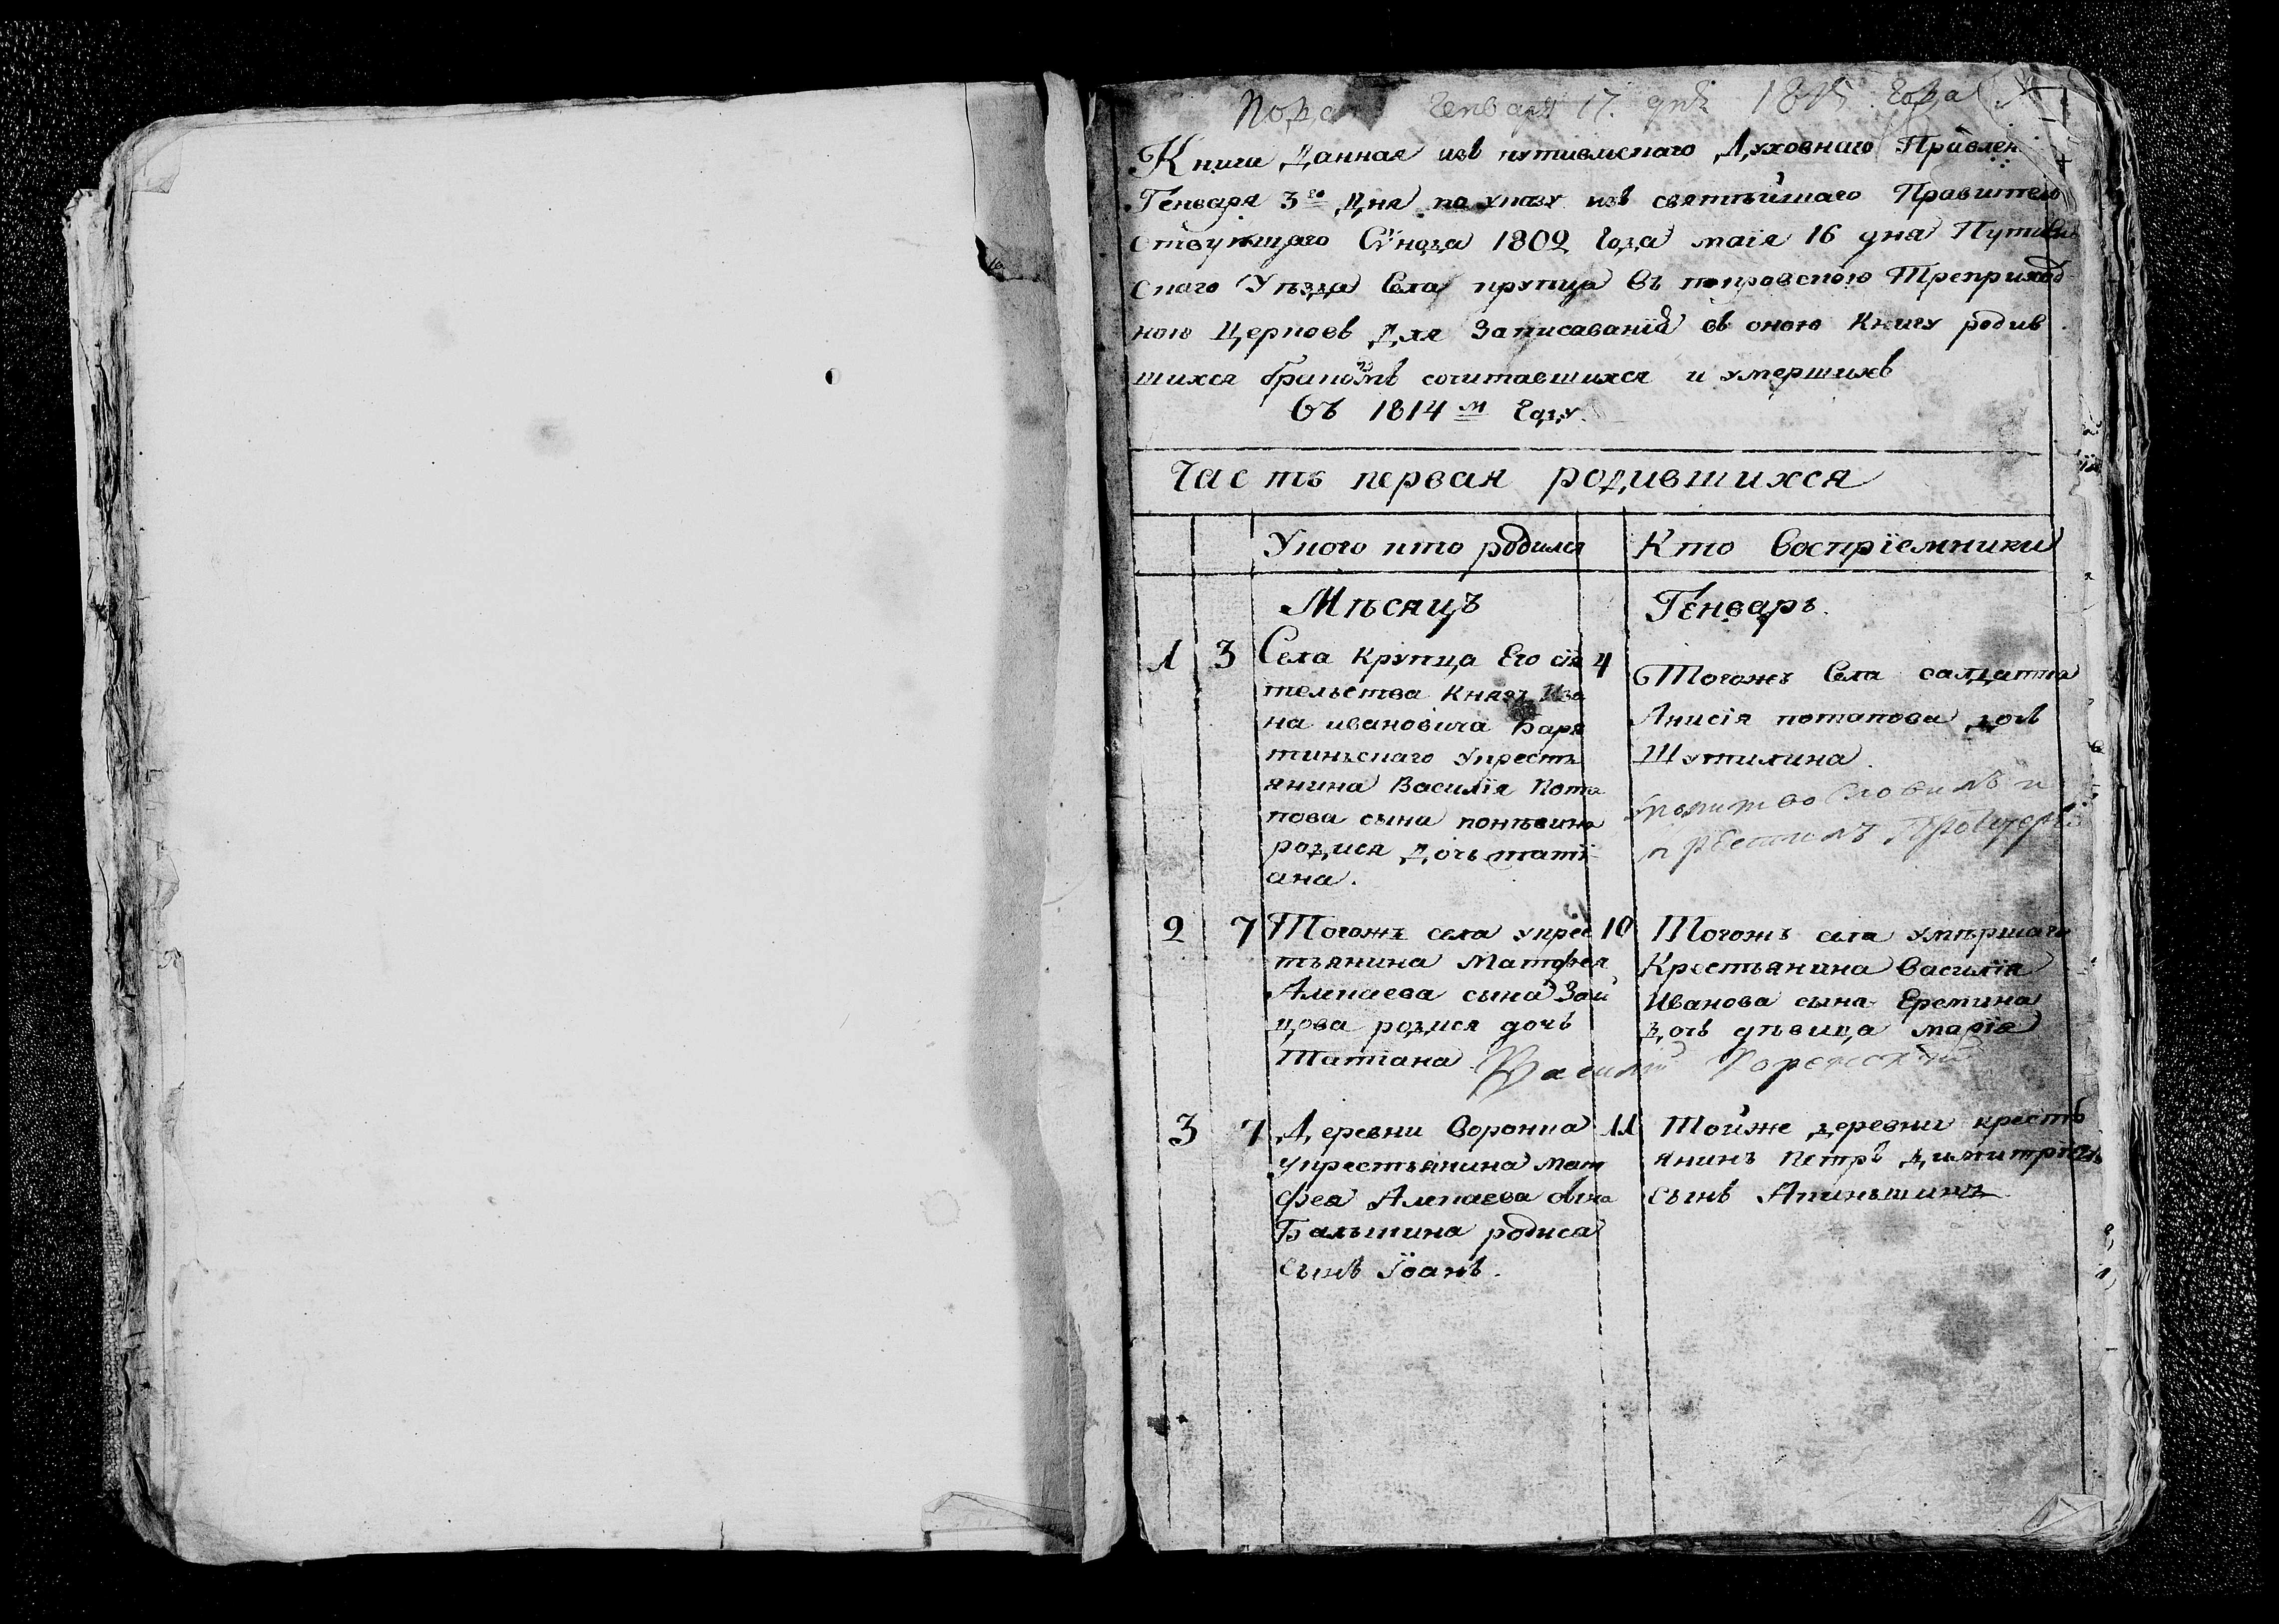 Генваря 17. дня 1815 года
Книга Данная изъ путивлскаго Духовнаго Правлен
Генваря 3го Дня по указу изъ святѣйшаго Правител
ствующаго Сѵнода 1802 года маїя 16 дна Путивл
скаго Уѣзда Села крупца въ покровскою Треприход
ною Церковъ Для Записаванїя въ оною Книгу родив
шихся бракомъ сочитавшихся и умершихъ
Въ 1814м Году.
Часть первая родившихся
Укого кто родился Кто Воспрїемники
Мѣсяцъ Генварь.
1 3 Села Крупца Его сїя 4
тельства Князя Ива
на ивановича Баря
тинъскаго укрестъ
янина Василїя Пота
пова сына
родися Дочь татї
ана.
Тогожъ Села салдатка
Анисїя потапова дочь
Шутилина.
молитвословилъ и
крестилъ
2 7 Тогожъ села укрес 10
тьянина Матфея
Алпаева сына Зай
цова родися дочь
Татїана
Тогожъ села умѣршаго
Крестьянина Василїя
Иванова сына Еремина
дочь дѣвица марїя
Василїй
3 7 Деревни Воронка 11
укрестьянина Мат
фея Алпаева сына
Балъшина родися
Сынъ Їоанъ.
Тойже деревни кресть
янинъ Петръ Димитрїевъ
сынъ